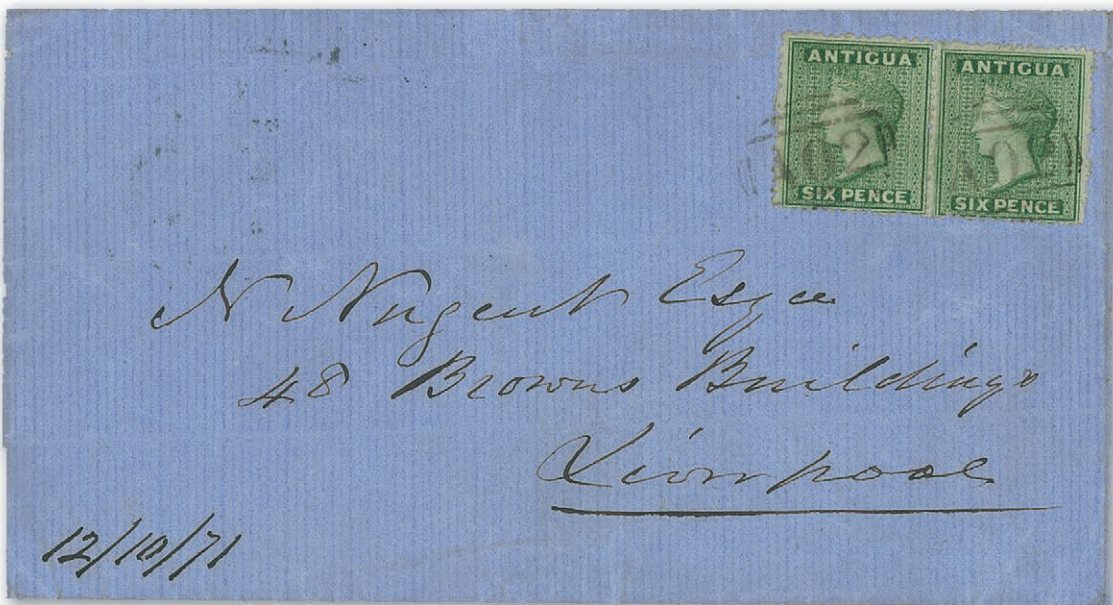 ANTIGUA ANTIGUA
SIX PENCE SIX PENCE
N Nugent Esqre
48 Browns Buildings
Liverpool
12/10/71